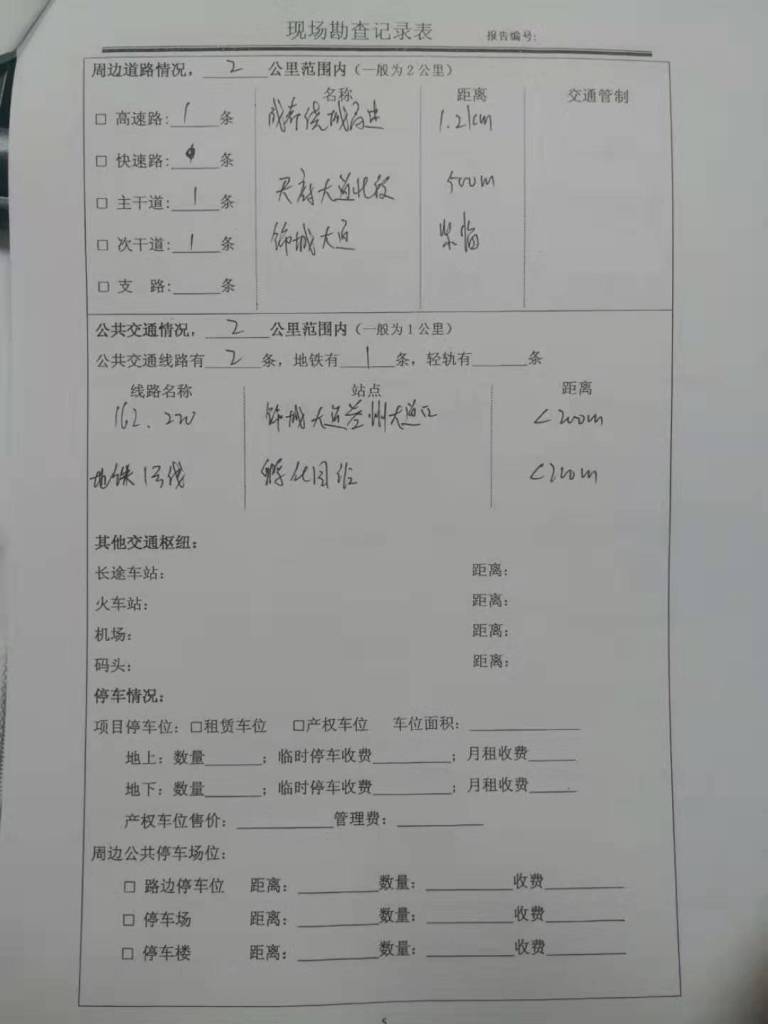 现场勘查记录表 报告编号:
周边道路情况，2公里范围内（一般为2公里）
名称 距离 交通管制
□ 高速路:1条 成都绕城高速 1.2km
□ 快速路:条
□ 主干道:1条 天府大道北段 500m
□ 次干道:1条 锦城大道 紧临
□ 支 路:____条
公共交通情况，2公里范围内（一般为1公里）
公共交通线路有2条，地铁有1条，轻轨有____条
线路名称 站点 距离
162、220 锦城大道益州大道口 <200m
地铁1号线 孵化园站 <200m
其他交通枢纽：
长途车站： 距离：
火车站： 距离：
机场： 距离：
码头： 距离：
停车情况：
项目停车位：□租赁车位 □产权车位 车位面积：____
地上：数量____；临时停车收费____；月租收费____
地下：数量____；临时停车收费____；月租收费____
产权车位售价：____管理费：____
周边公共停车场位：
□ 路边停车位 距离：____数量：____收费____
□ 停车场 距离：____数量：____收费____
□ 停车楼 距离：____数量：____收费____
5